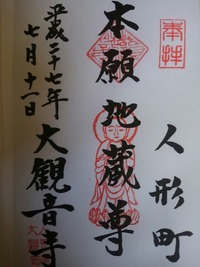 奉拝
人形町
本願地蔵尊
平成二十七年
七月十一日
大観音寺